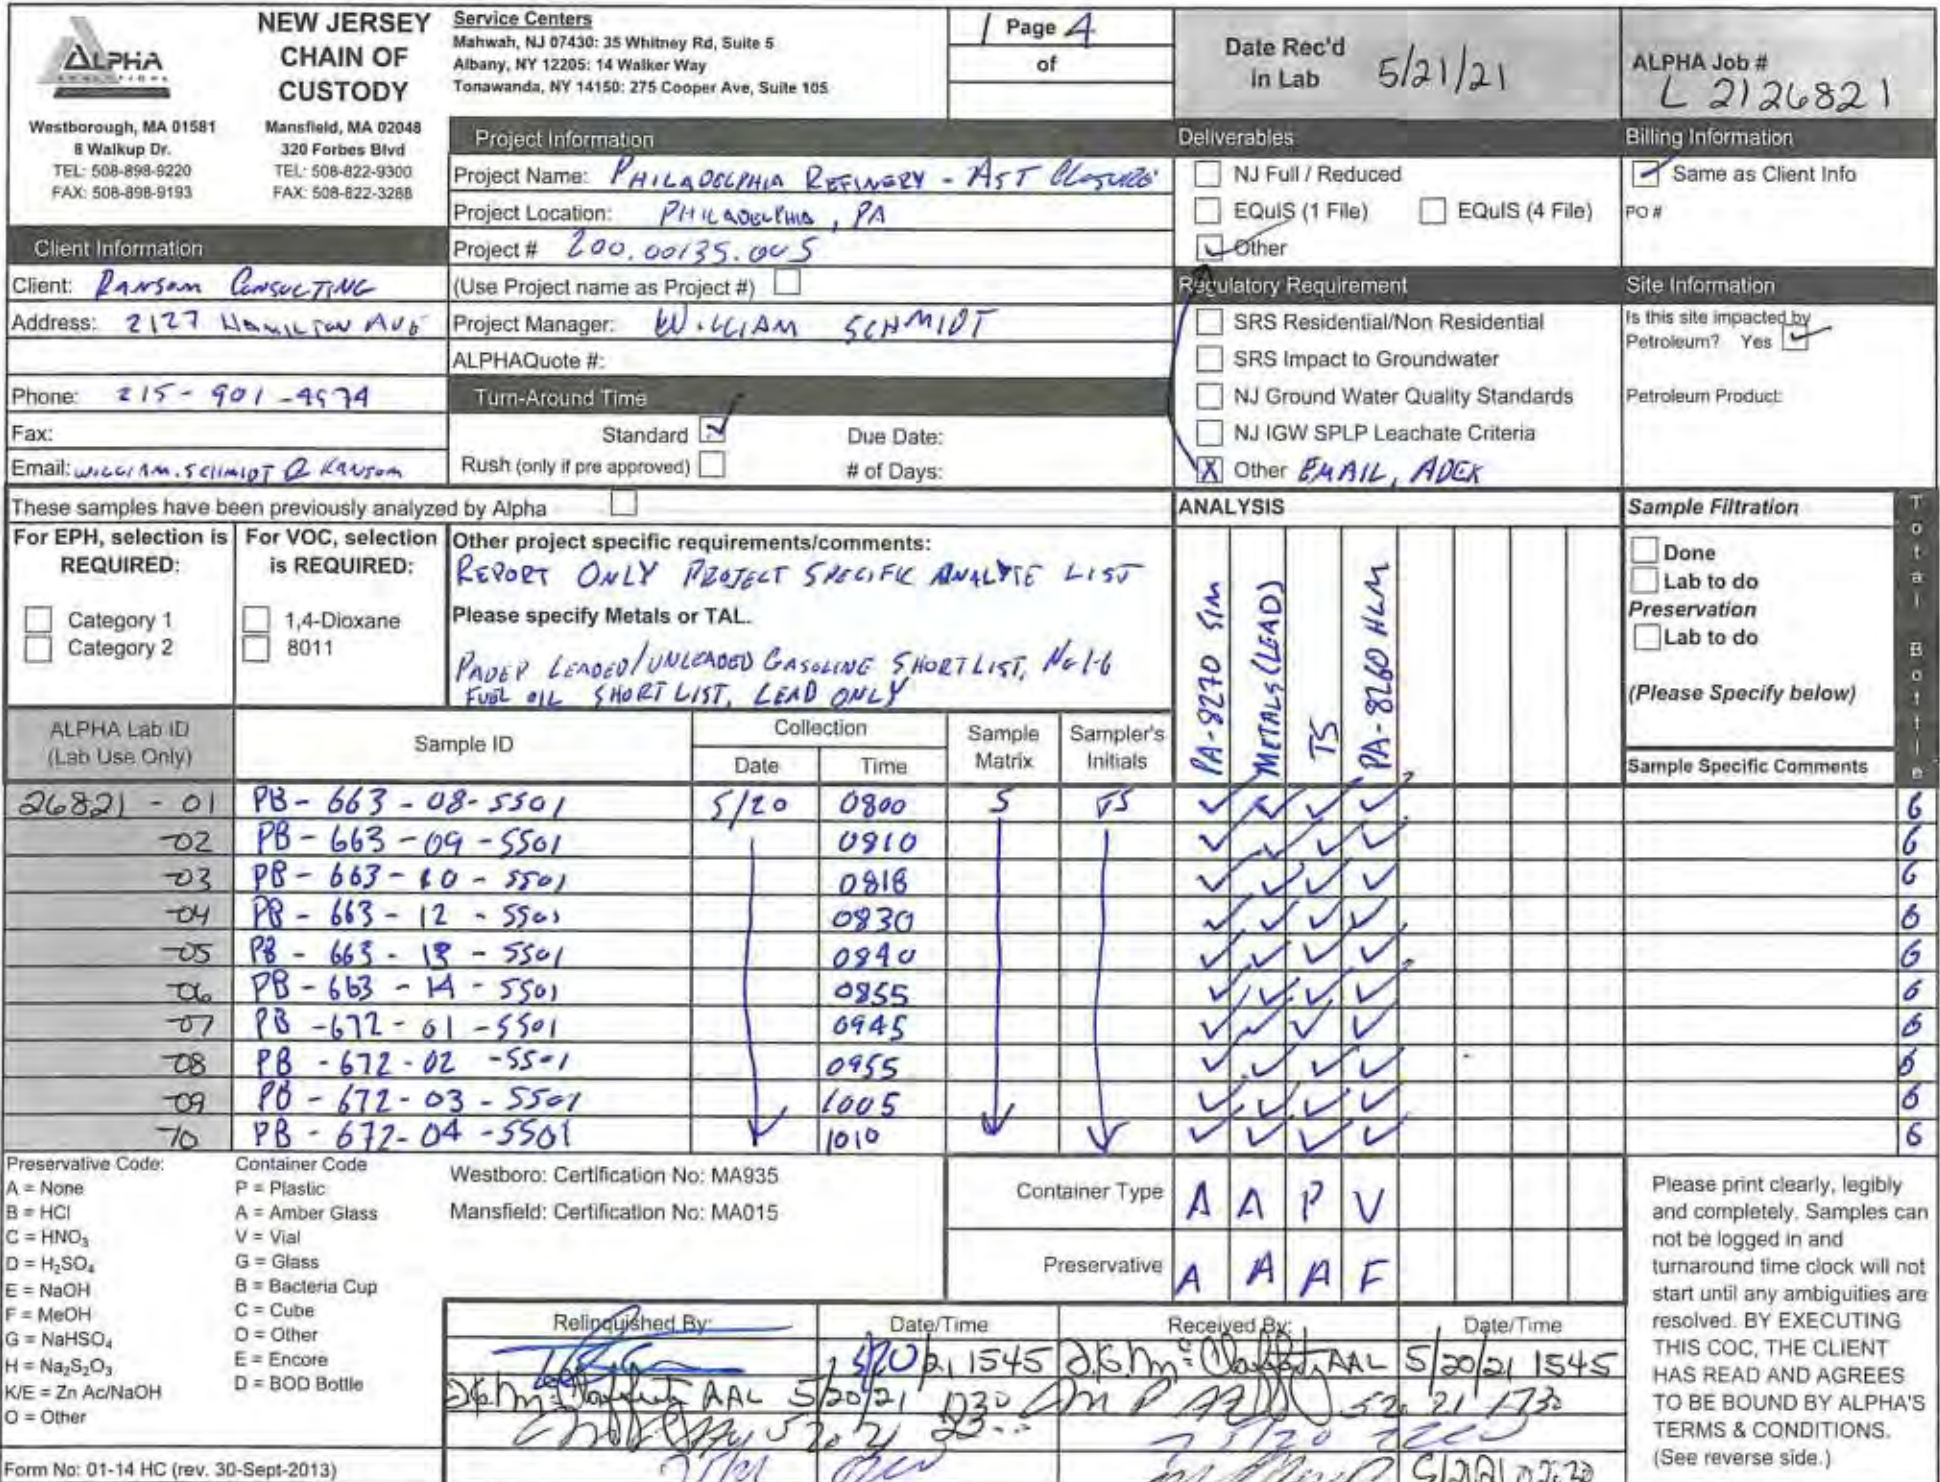 ALPHA
ANALYTICAL
NEW JERSEY
CHAIN OF
CUSTODY
Westborough, MA 01581
8 Walkup Dr.
TEL: 508-898-9220
FAX: 508-898-9193
Mansfield, MA 02048
320 Forbes Blvd
TEL: 508-822-9300
FAX: 508-822-3288
Service Centers
Mahwah, NJ 07430: 35 Whitney Rd, Suite 5
Albany, NY 12205: 14 Walker Way
Tonawanda, NY 14150: 275 Cooper Ave, Suite 105
1 Page 4
of
Date Rec'd
in Lab 5/21/21
ALPHA Job #
L 2126821
Client Information
Client: RANSOM CONSULTING
Address: 2127 HAMILTON AVE
Phone: 215-901-4974
Fax:
Email: WILLIAM.SCHMIDT @ RANSOM
Project Information
Project Name: PHILADELPHIA REFINERY - AST CLOSURE
Project Location: PHILADELPHIA, PA
Project # 200.00135.005
(Use Project name as Project #)
Project Manager: WILLIAM SCHMIDT
ALPHAQuote #:
Turn-Around Time
Standard
Due Date:
Rush (only if pre approved)
# of Days:
Deliverables
NJ Full / Reduced
EQuIS (1 File) EQuIS (4 File)
Other
Regulatory Requirement
SRS Residential/Non Residential
SRS Impact to Groundwater
NJ Ground Water Quality Standards
NJ IGW SPLP Leachate Criteria
X Other EMAIL, ADEX
Billing Information
Same as Client Info
PO #
Site Information
Is this site impacted by
Petroleum? Yes
Petroleum Product:
These samples have been previously analyzed by Alpha
For EPH, selection is
REQUIRED:
Category 1
Category 2
For VOC, selection
is REQUIRED:
1,4-Dioxane
8011
Other project specific requirements/comments:
REPORT ONLY PROJECT SPECIFIC ANALYTE LIST
Please specify Metals or TAL.
PADEP LEADED/UNLEADED GASOLINE SHORTLIST, No 1-6
FUEL OIL SHORT LIST, LEAD ONLY
ANALYSIS
PA-8270 SIM
METALS (LEAD)
TS
PA-8260 HLM
Sample Filtration
Done
Lab to do
Preservation
Lab to do
(Please Specify below)
Total Bottle
ALPHA Lab ID
(Lab Use Only)
Sample ID
Collection
Date
Time
Sample
Matrix
Sampler's
Initials
Sample Specific Comments
26821 - 01 PB-663-08-SS01 5/20 0800 S JS 6
-02 PB-663-09-SS01 0810 6
-03 PB-663-10-SS01 0818 6
-04 PB-663-12-SS01 0830 6
-05 PB-663-13-SS01 0840 6
-06 PB-663-14-SS01 0855 6
-07 PB-672-01-SS01 0945 6
-08 PB-672-02-SS01 0955 6
-09 PB-672-03-SS01 1005 6
-10 PB-672-04-SS01 1010 6
Preservative Code:
A = None
B = HCl
C = HNO3
D = H2SO4
E = NaOH
F = MeOH
G = NaHSO4
H = Na2S2O3
K/E = Zn Ac/NaOH
O = Other
Container Code
P = Plastic
A = Amber Glass
V = Vial
G = Glass
B = Bacteria Cup
C = Cube
O = Other
E = Encore
D = BOD Bottle
Westboro: Certification No: MA935
Mansfield: Certification No: MA015
Container Type A A P V
Preservative A A A F
Relinquished By:
Date/Time
Received By:
Date/Time
1545 AAL 5/20/21 1545
AAL 5/20/21 1730
Please print clearly, legibly
and completely. Samples can
not be logged in and
turnaround time clock will not
start until any ambiguities are
resolved. BY EXECUTING
THIS COC, THE CLIENT
HAS READ AND AGREES
TO BE BOUND BY ALPHA'S
TERMS & CONDITIONS.
(See reverse side.)
Form No: 01-14 HC (rev. 30-Sept-2013)